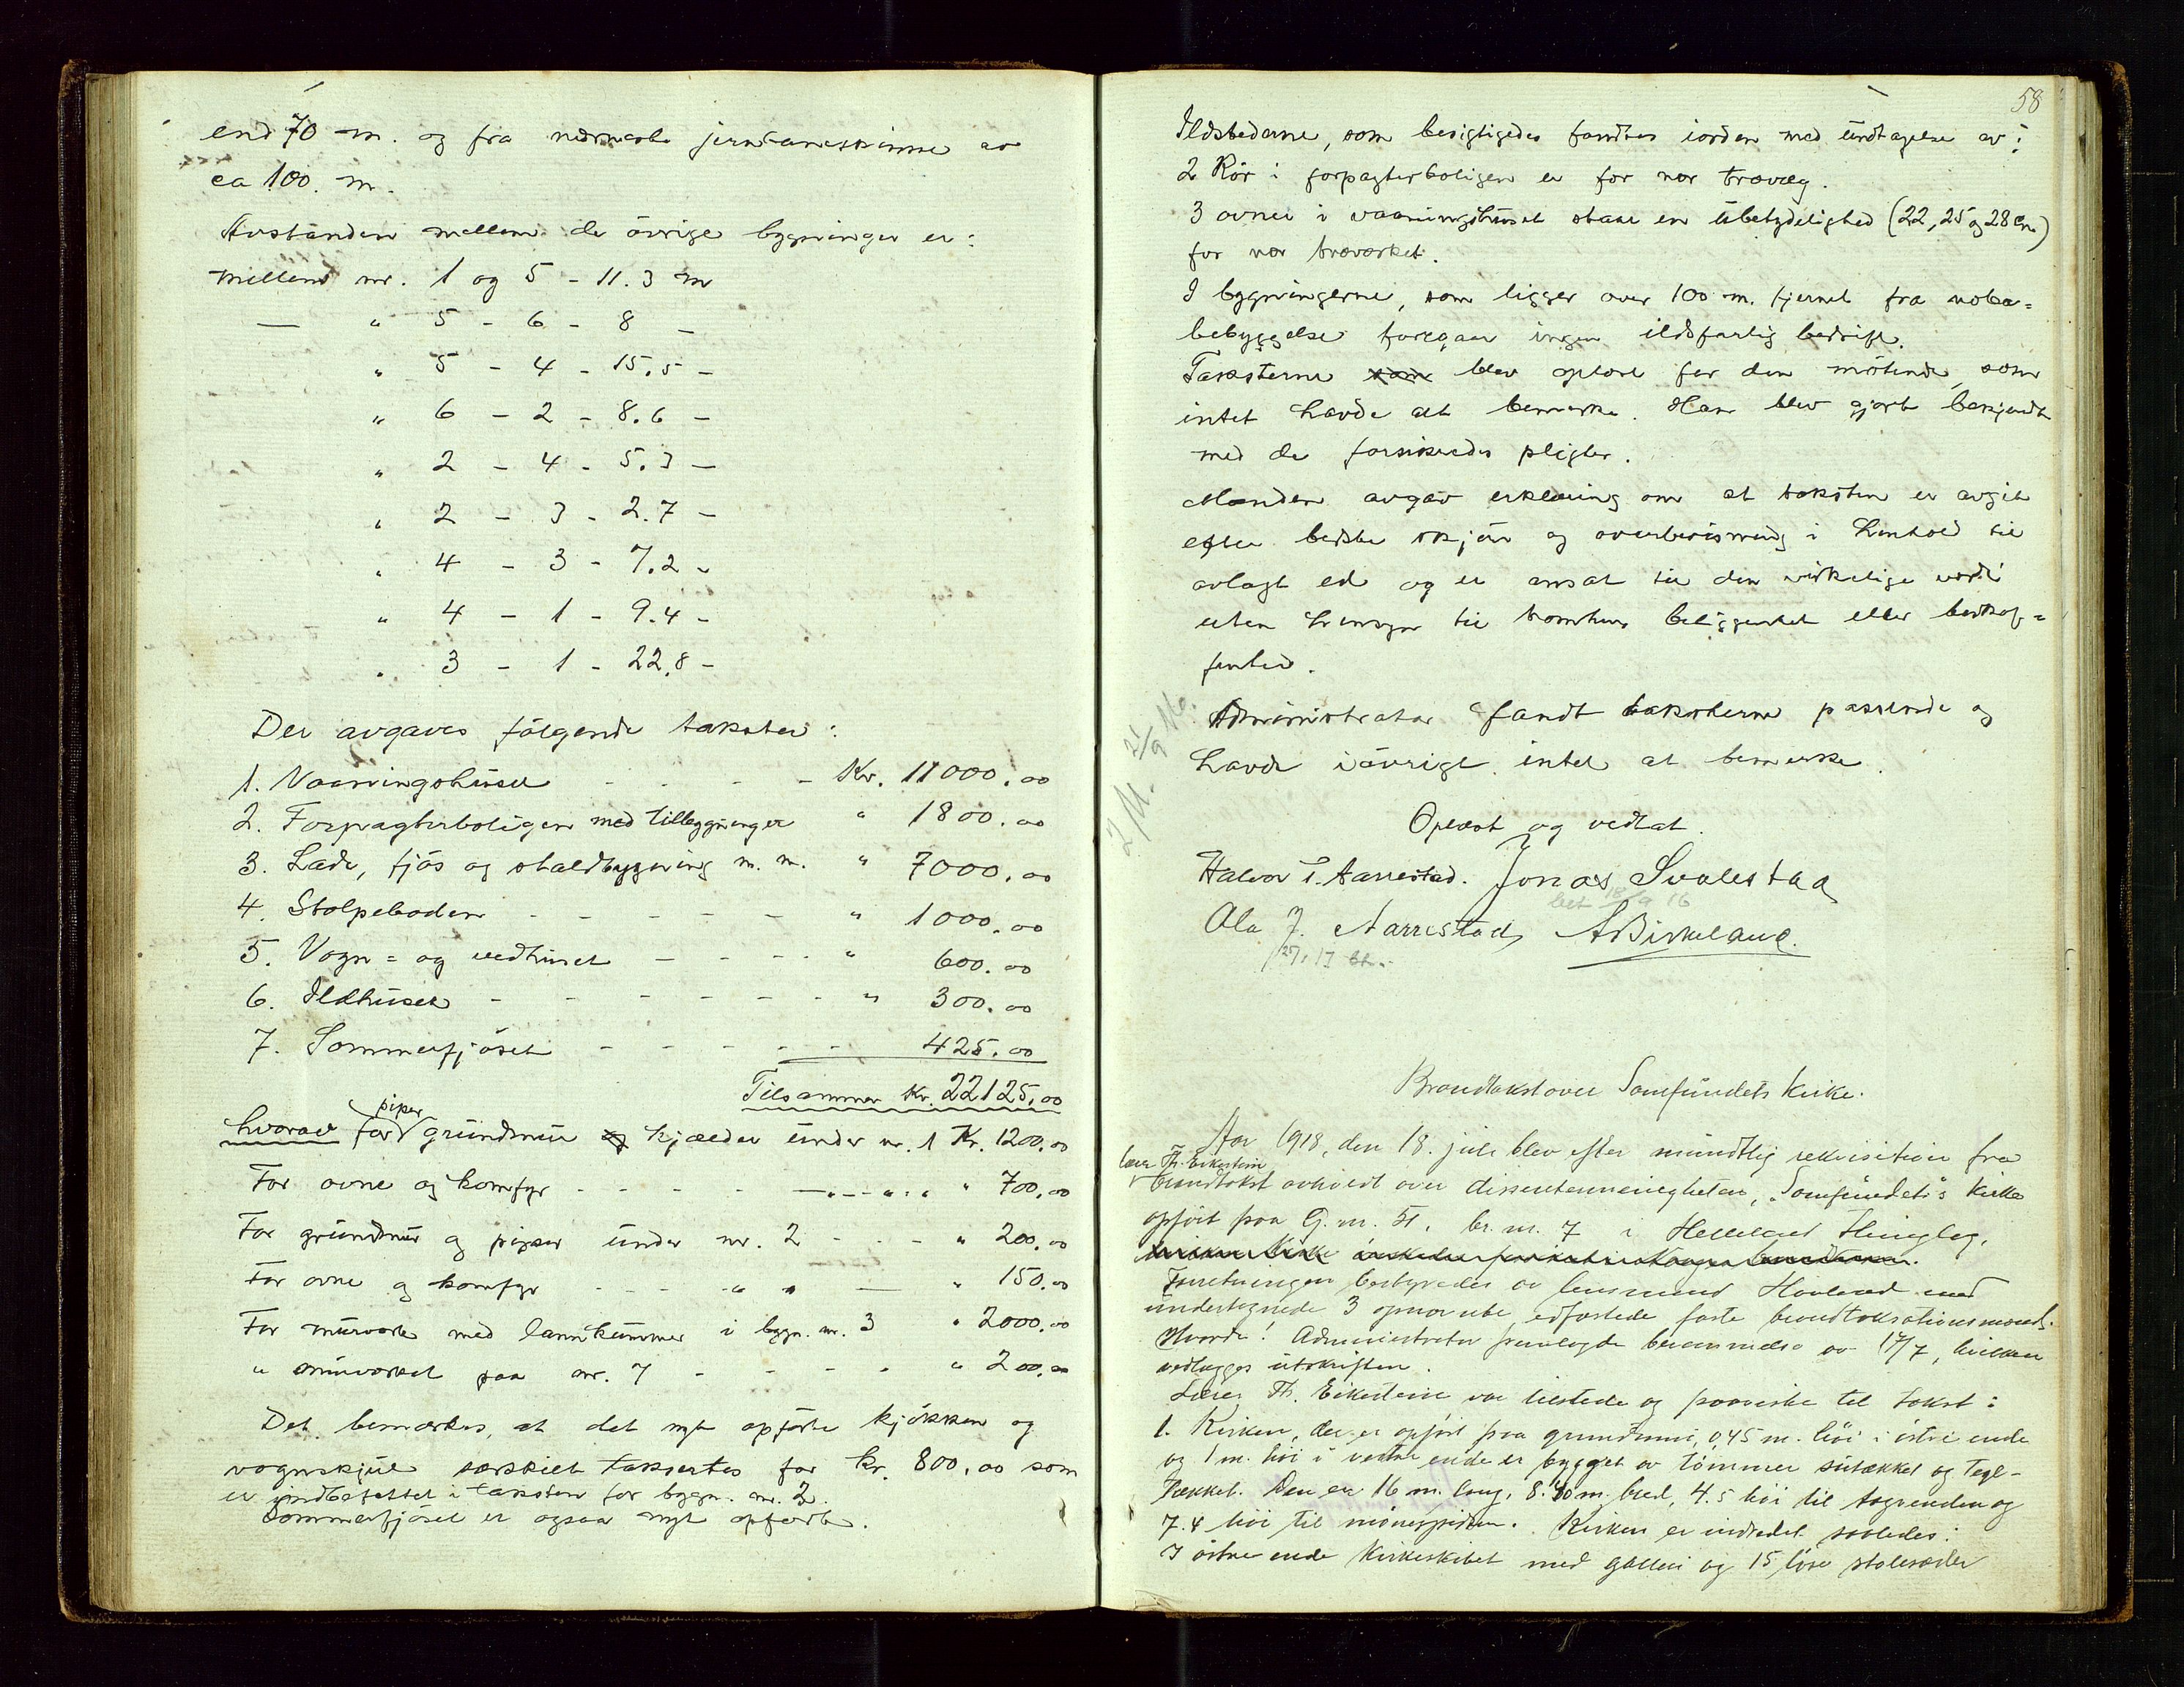 end 70 m. og fra nærmeste jernbaneskinne av
ca 100. m.
Avstanden mellem de øvrige bygninger er:
mellem nr. 1 og 5 - 11.3 m
— " 5 - 6 - 8 -
" 5 - 4 - 15.5 -
" 6 - 2 - 8.6 -
" 2 - 4 - 5.3 -
" 2 - 3 - 2.7 -
" 4 - 3 - 7.2 -
" 4 - 1 - 9.4 -
" 3 - 1 - 22.8 -
Der avgaves følgende takster:
1. Vaaningshuset - - - - Kr. 11000.00
2. Forpagterboligen med tilbygninger " 1800.00
3. Lade, fjøs og staldbygning m. m. " 7000.00
4. Stolpeboden - - - - - " 1000.00
5. Vogn= og vedhuset - - - - " 600.00
6. Ildhuset - - - - - - " 300.00
7. Sommerfjøset - - - - - 425.00
Tilsammen Kr. 22125.00
piper
hvorav for grundmur og kjælder under nr. 1 Kr. 1200.00
For ovne og komfyr - - - - " - " - " " 700.00
For grundmur og piper under nr. 2 - - - " 200.00
For ovne og komfyr - - - " " — " 150.00
For mürverk med lannkummer i bygn. nr. 3 " 2000.00
" mürverket paa nr. 7 - - - - " 200.00
Det bemerkes, at det nyt opførte kjøkken og
vognskjul særskilt taksertes for kr. 800.00 som
er indbefattet i taksten for bygn. nr. 2.
Sommerfjøset er ogsaa nyt opført.
58
Ildstederne, som besigtigedes fandtes iorden med undtagelse av:
2 Rör i forpagterboligen er for nær trævæg.
3 ovner i vaaningshuset staar en ubetydelighed (22, 25 og 28 cm)
for nær træverket.
I bygningerne, som ligger over 100 m. fjernet fra
bebyggelse foregaar ingen ildsfarlig bedrift.
Taksterne som blev oplæst for den møtende, som
intet havde at bemerke. Han blev gjort bekjendt
med de forsikredes pligter.
Mænden avgav erklæring om at taksten er avgit
efter bedste skjøn og overbevisning i henhold til
avlagt ed og er ansat til den virkelige værdi
uten hensyn til tomtens beliggenhet eller beskaf=
fenhed.
Administrator fandt taksterne passende og
havde iøvrigt intet at bemerke.
21/9 16.
Oplæst og vedtat.
Halvor T. Aarrestad. Jonas Svalestad
bet 18/9 16
Ola J. Aarrestad, A Birkeland.
Brandtakst over Samfundets kirke.
Aar 1918, den 18. juli blev efter mundtlig rekvisition fra
lærer Th. Eikestein
brandtakst avholdt over dissentermenigheten, "Samfundet"s kirke
opført paa G. nr. 51, br. nr. 7 i Helleland
Forretningen bestyredes av lensmand Hovland med
undertegnede 3 opnævnte, edfæstede faste brandtaksationsmænd.
Hvorda! Administrator fremlagde berammelse av 17/7, hvilken
vedlægges utskriften.
Lærer Th. Eikestein var tilstede og paaviste til takst:
1. Kirken, der er opført paa grundmur, 0,45 m. høi i østre ende
og 1 m. høi i vestre ende er bygget av tømmer sutækket og tegl-
tækket. Den er 16 m. lang, 8.40 m. bred, 4.5 høi til tagrenden og
7.4 høi til mønespidsen. Kirken er indredet saaledes:
I østre ende kirkeskibet med galleri og 15 løse stolesæder